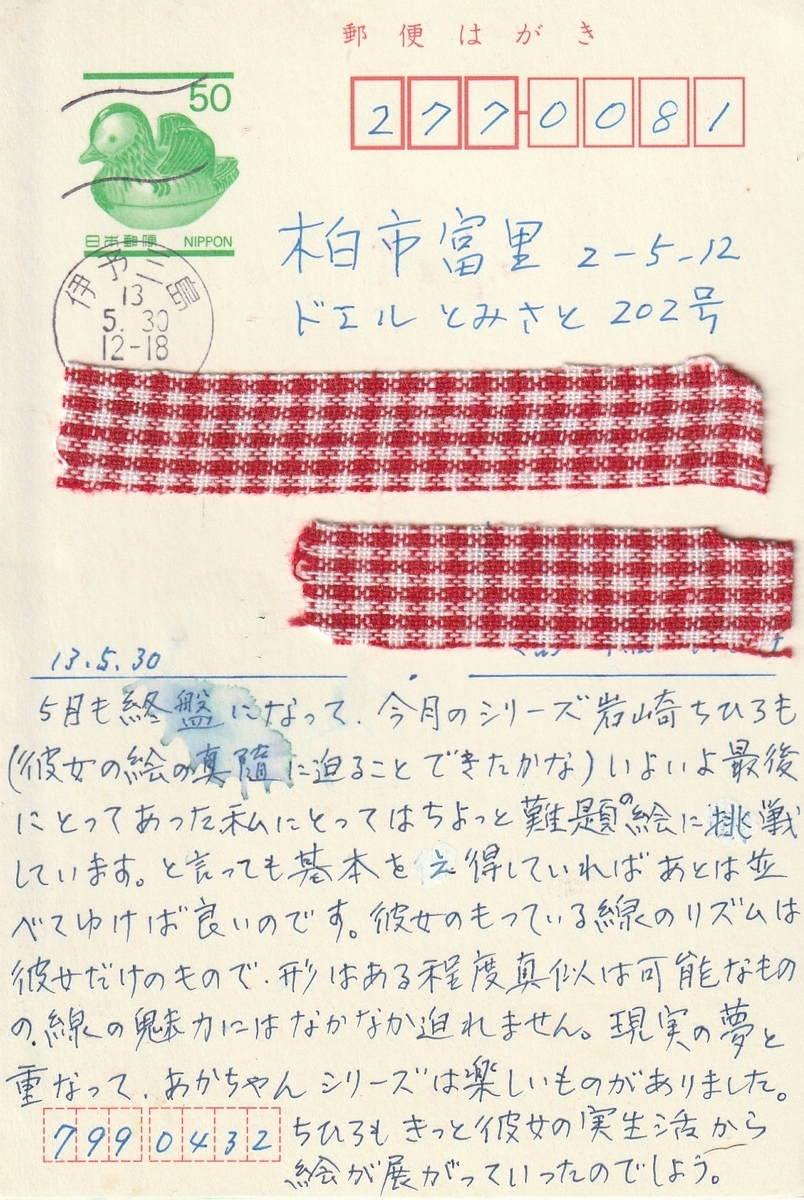 郵便はがき
50
日本郵便 NIPPON
277-0081
伊予三島
13
5.30
12-18
柏市富里 2-5-12
ドエルとみさと 202号
13.5.30
5月も終盤になって、今月のシリーズ岩崎ちひろも
(彼女の絵の真随に迫ることできたかな)いよいよ最後
にとってあった私にとってはちょっと難題の絵に挑戦
しています。と言っても基本を 得していればあとは並
べてゆけば良いのです。彼女のもっている線のリズムは
彼女だけのもので、形はある程度真似は可能なもの
の、線の魅力にはなかなか迫れません。現実の夢と
重なって、あかちゃんシリーズは楽しいものがありました。
ちひろもきっと彼女の実生活から
絵が展がっていったのでしよう。
799 0432